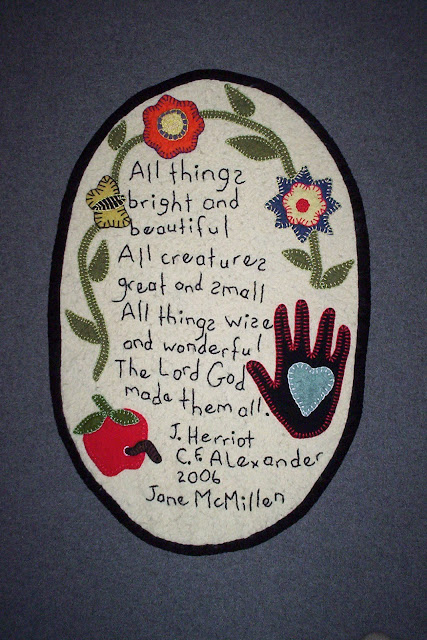 All things
bright and
beautiful
All creatures
great and small
All things wise
and wonderful
The Lord God
made them all.
J. Herriot
C.F. Alexander
2006
Jane McMillen